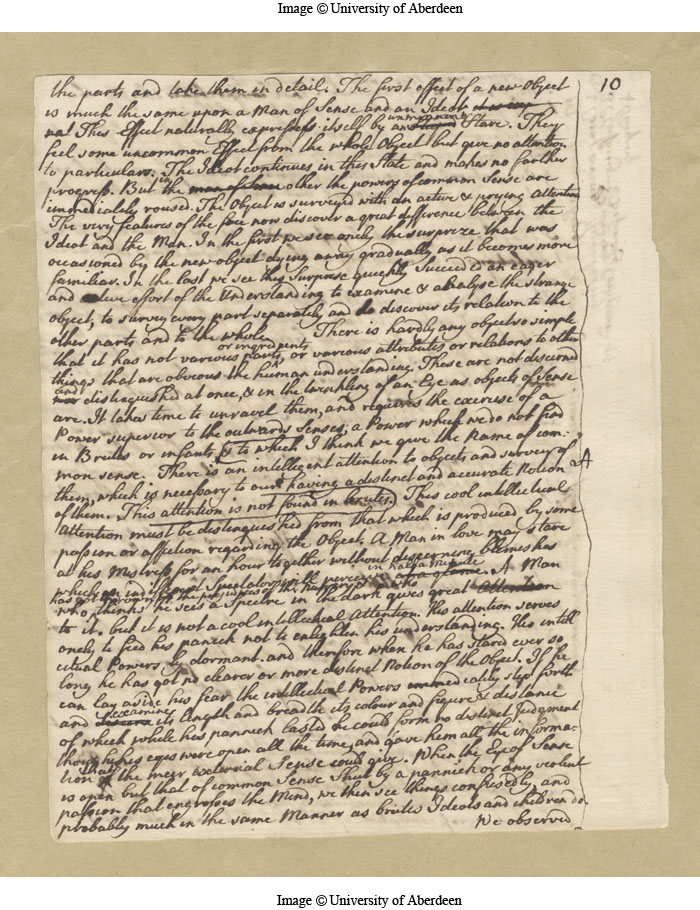 Image © University of Aberdeen
10
the parts and take them in detail. The first effect of a new Object
is much the same upon a Man of Sense and an Ideot
This Effect naturally expresses itself by an unmeaning Stare. They
feel some uncommon Effect from the whole Object but give no attention
to particulars. The Ideot continues in this State and makes no farther
progress. But in the man of sense other the powers of common Sense are
immediately roused. The Object is surveyed with an active & prying attention
The very features of the face now discover a great difference between the
Ideot and the Man. In the first we see onely the surprize that was
occasioned by the new object dying away gradually as it becomes more
familiar. In the last we see this Surprise quickly Succeed an eager
and active effort of the Understanding to examine & analyse the strange
object, to survey every part separately and to discover its relation to the
other parts and to the whole. There is hardly any object so simple
that it has not various parts, or ingredients or various attributes or relations to other
things that are obvious the human understanding. These are not discernd
and distinguished at once, & in the twinkling of an Eye as objects of Sense
are. It takes time to unravel them, and requires the exercise of a
Power superior to the outward Senses; a Power which we do not find
in Brutes or infants, & to which I think we give the Name of com-
mon sense. There is an intelligent attention to objects and survey of
them, which is necessary to our having a distinct and accurate Notion A
of them. This attention is not found in brutes. This cool intellectual
Attention must be distinguished from that which is produced by some
passion or affection regarding the Object. A Man in love may stare
at his Mistress for an hour together without discerning blemishes
which an indifferent Spectator will perceive in half a minute A Man
who thinks he sees a Spectre in the dark gives great Attention
to it. but it is not a cool intellectual Attention. His attention serves
onely to feed his panick not to enlighten his understanding. His intell
ectual Powers ly dormant. and therefore when he has stared ever so
long he has got no clearer or more distinct Notion of the Object. If he
can lay aside his fear the intellectual Powers immediately step forth
and examine its length and breadth its colour and figure & distance
of which while his pannick lasted he could form no distinct judgment
though his eyes were open all the time, and gave him all the informa-
tion that the meer external Sense could give. When the Eye of Sense
is open but that of common Sense Shut by a pannick or any violent
passion that engrosses the Mind, we then see things confusedly, and
probably much in the same Manner as brutes Ideots and children do.
We observed
Image © University of Aberdeen